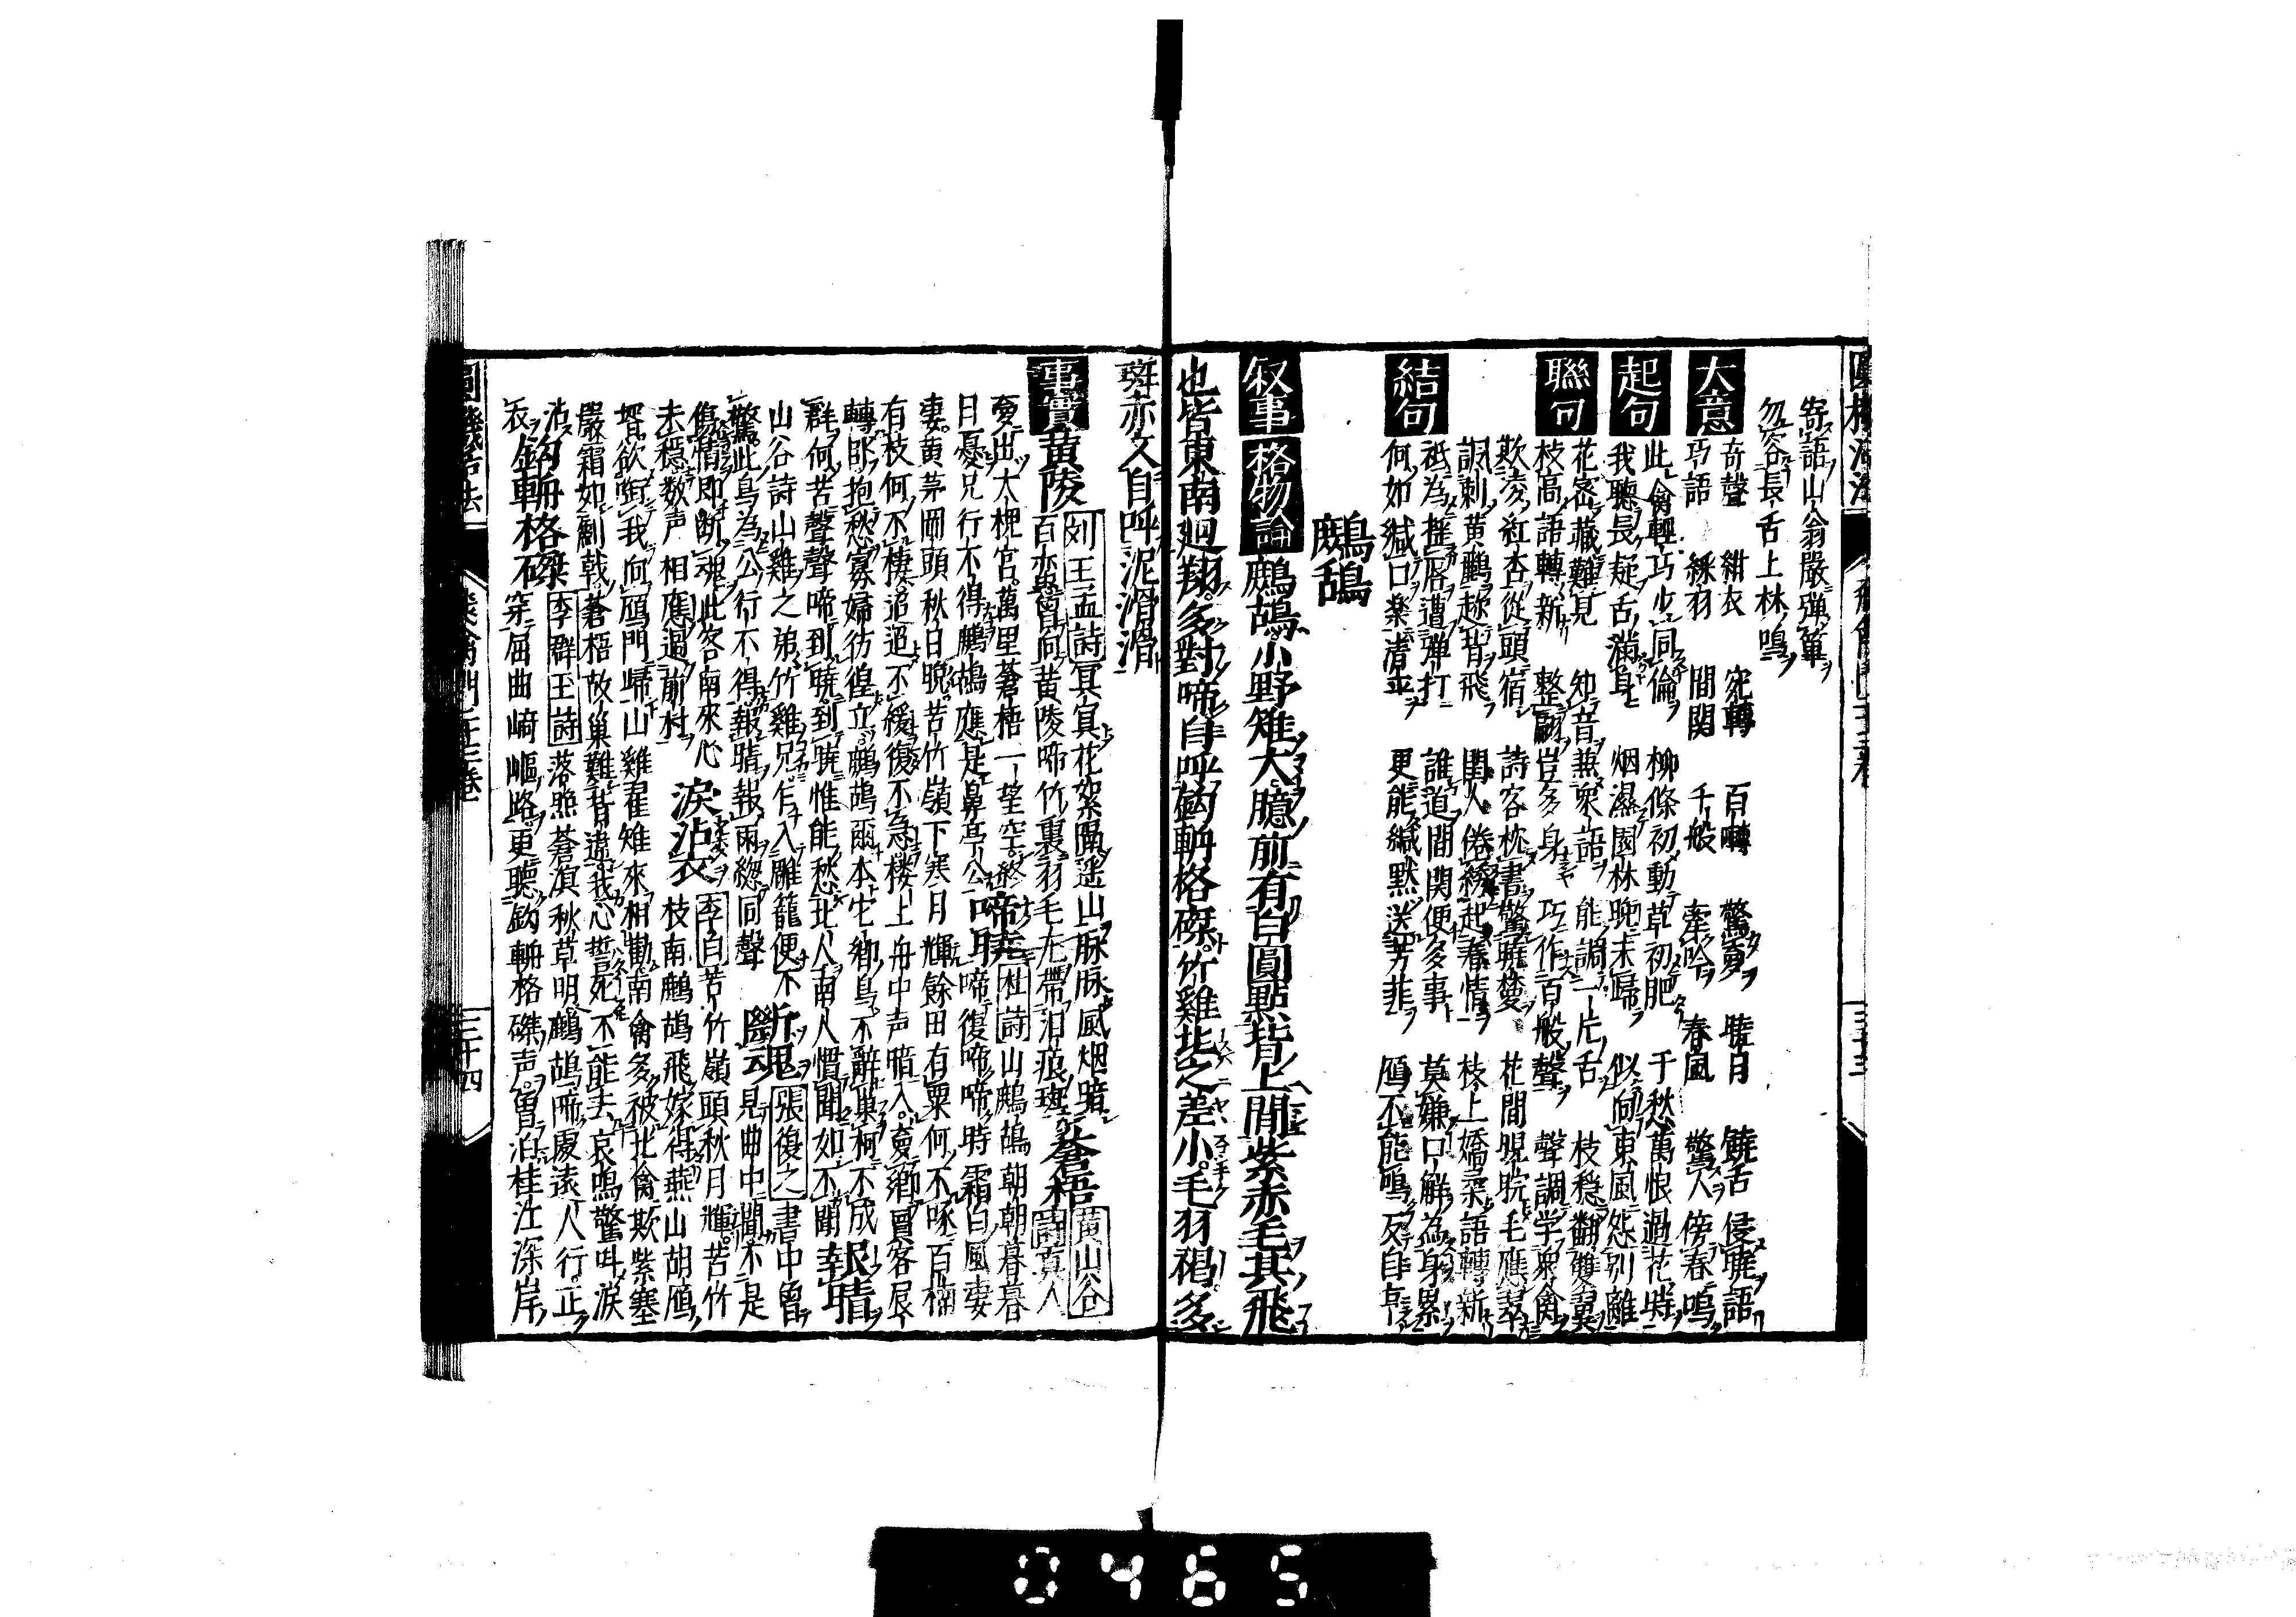 寄語山翁嚴彈單
勿容長舌上林鳴
大意
奇聲 紺衣 宛轉 百囀 驚夢 曉月 饒舌 侵曉語
巧語 綵羽 間関 千般 牽吟 春風 驚人 傍春鳴
起句
此禽輕巧少同倫 柳條初動草初肥 千愁萬恨過花時
我聽長疑舌滿身 烟濕園林晚未歸 似向東風怨別離
聯句
花密藏難見 知音兼衆語 能調一片舌 枝穩翻雙翼
枝高語轉新 整翩豈多身 巧作百般聲 聲調学衆禽
欺凌紅杏從頭宿 詩客枕書驚曉夢 花間睍睆毛應翠
諷刺黄鸝趁背飛 閨人倦綉起春情 枝上嬌柔語轉新
結句
祗為揺唇遭弾打 誰道間関便多事 莫嫌口解為身累
何如緘口楽清平 更能緘黙送芳菲 鴈不能鳴反自烹
鷓鴣
叙事
格物論
鷓鴣小野雉大臆前有白圓點背上間紫赤毛其飛
也皆東南廻翔多對啼自呼鈎輈格磔竹雞此之差小毛羽褐多
斑赤文自呼泥滑滑
事實
黄陵
列王孟詩
冥冥花絮隔遥山脉脉風烟暗
百蠻曽向黄陵啼竹裏羽毛尤帶泪痕斑
蒼梧
黄山谷詩
真人
夢出大槐宮萬里蒼梧一望空終
日憂兄行不得鷓鴣應是鼻亭公
啼時
杜詩
山鷓鴣朝朝暮暮
啼復啼啼時霜白風凄
凄黄茅岡頭秋日晚苦竹嶺下寒月輝餘田有粟何不啄百楠
有枝何不棲迢迢不緩復不急楼上舟中声暗入夢郷冐客展
轉卧抱愁寡婦彷徨立鷓鴣爾本它郷鳥不辭巣柯不成
群何苦聲聲啼到曉到曉惟能愁北人南人慣聞如不聞
報晴
山谷詩山雞之弟竹雞兄乍入雕籠便不
驚此鳥為公行不得報晴報雨總同聲
断魂
張復之
書中曽
見曲中聞不是
傷情即断魂此客南來心
未穩数声相應過前村
涙沾衣
李白
苦竹嶺頭秋月輝苦竹
枝南鷓鴣飛嫁得燕山胡鴈
壻欲啣我向鴈門歸山雞翟雉來相勸南禽多被北禽欺紫塞
嚴霜如劍戟蒼梧故巣難背違我心誓死不能去哀鳴驚叫涙
沾衣
鈎輈格磔
李群玉詩
落照蒼溟秋草明鷓鴣啼處遠人行正
穿屈曲崎嶇路更聽鈎輈格磔声曽泊桂江深岸
三十四
0465